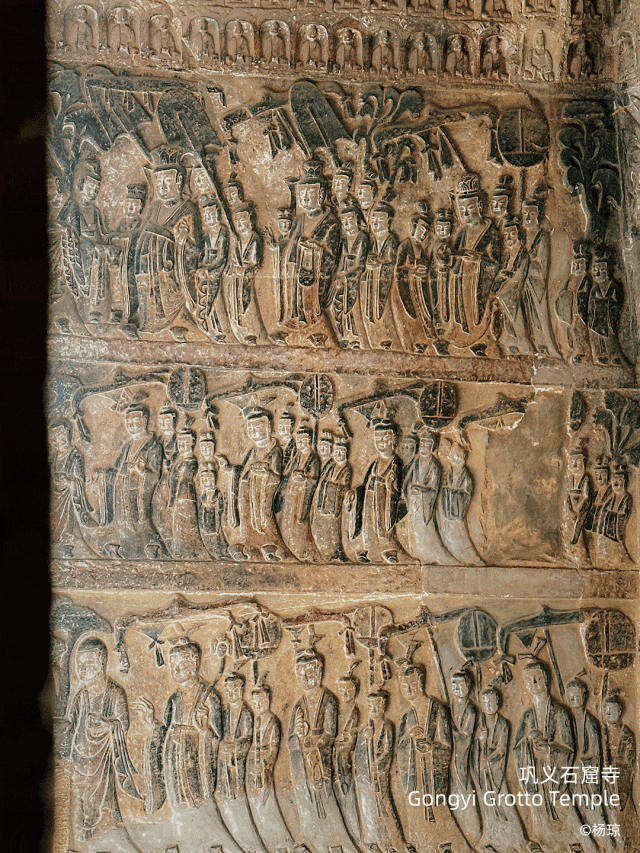 巩义石窟寺
Gongyi Grotto Temple
©杨琼